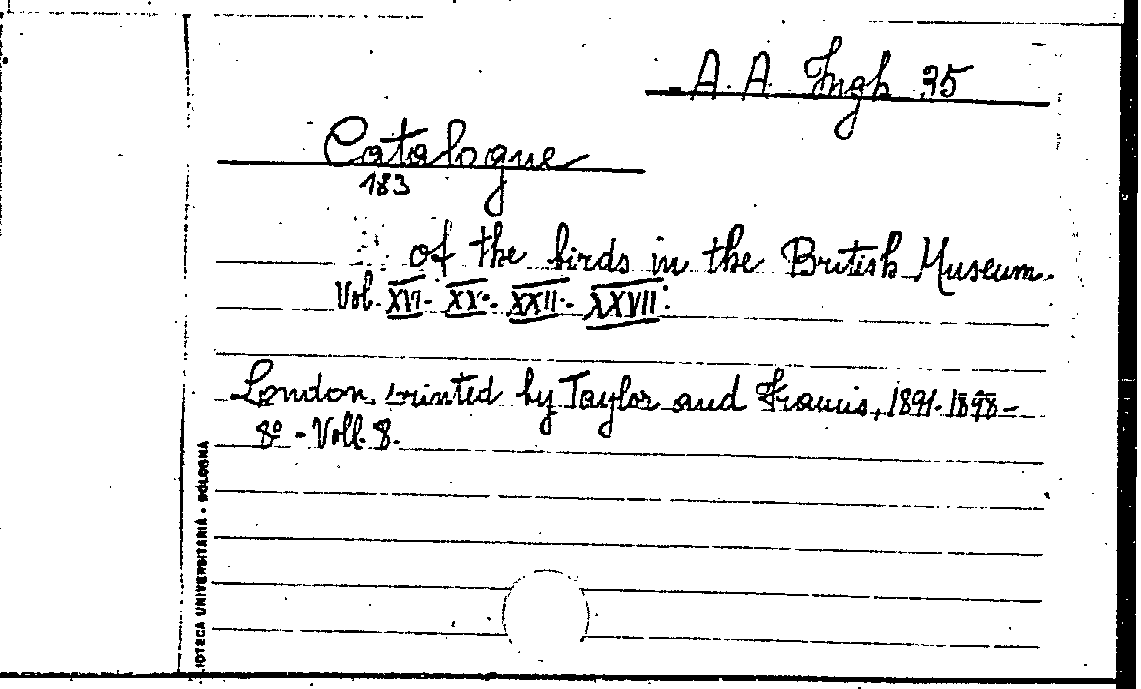 A. A. Ingh 35
Catalogue
183
of the birds in the British Museum.
Vol. XVI - XX - XXII - XXVII:
London, printed by Taylor and Francis, 1891-1898-
8º - Voll. 8.
IOTECA UNIVERSITARIA - BOLOGNA